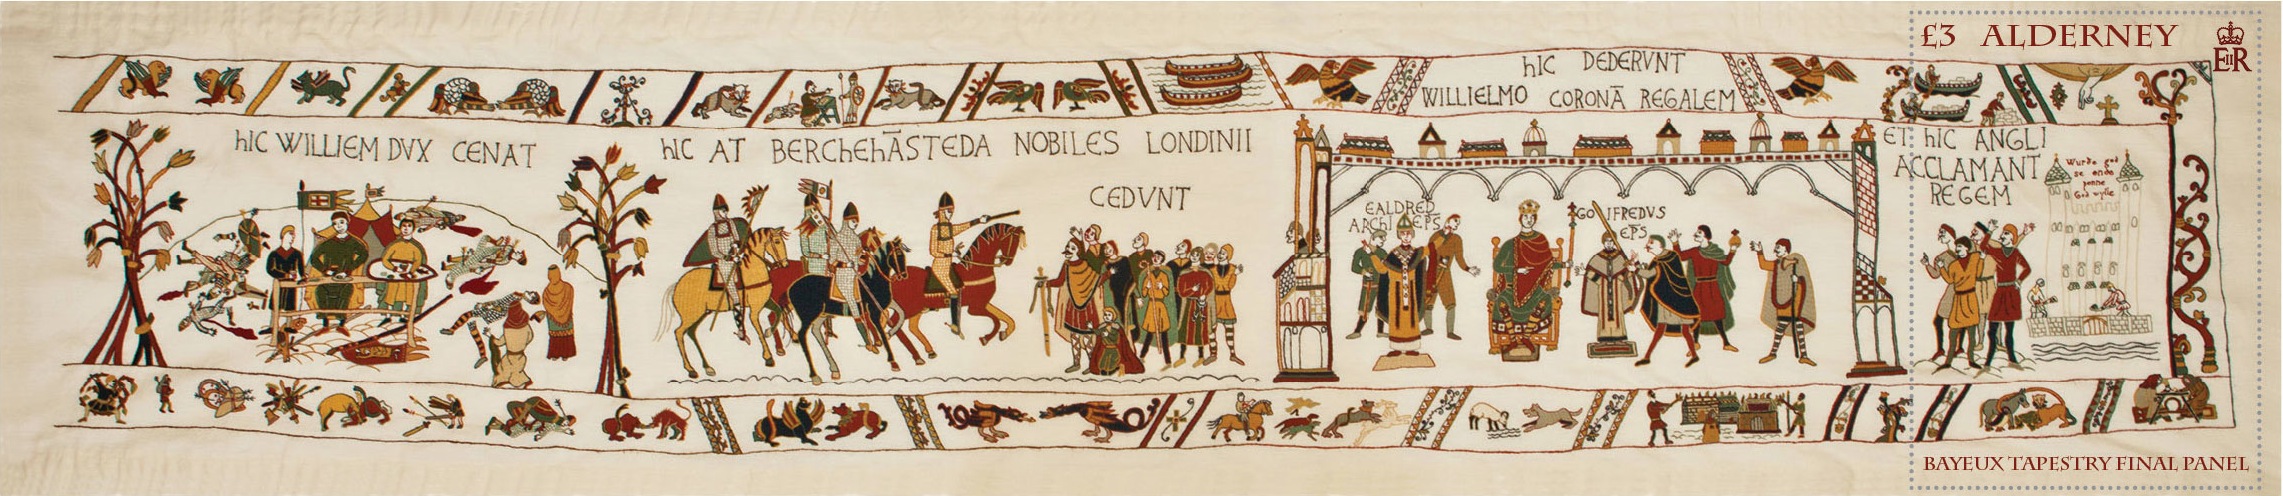 £3 ALDERNEY
EIIR
hIC DEDERVNT
WILLIELMO CORONĀ REGALEM
hIC WILLIEM DVX CENAT
hIC AT BERChEhĀSTEDA NOBILES LONDINII
CEDVNT
EALDRED
ARCHI EP̄S
GOIFREDVS
EP̄S
ET hIC ANGLI
ACCLAMANT
REGEM
Wurðe god
se ende
þonne
God wylle
BAYEUX TAPESTRY FINAL PANEL